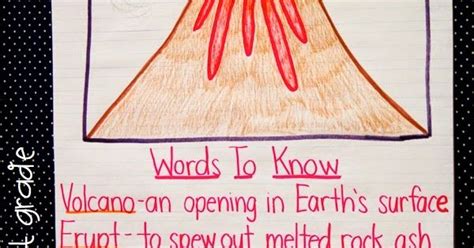 Words To Know
Volcano-an opening in Earth's surface
Erupt--to spew out melted rock, ash
grade